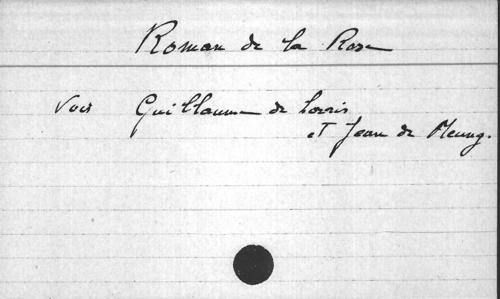 Roman de la Rose
Voir Guillaume de Lorris
et Jean de Meung.